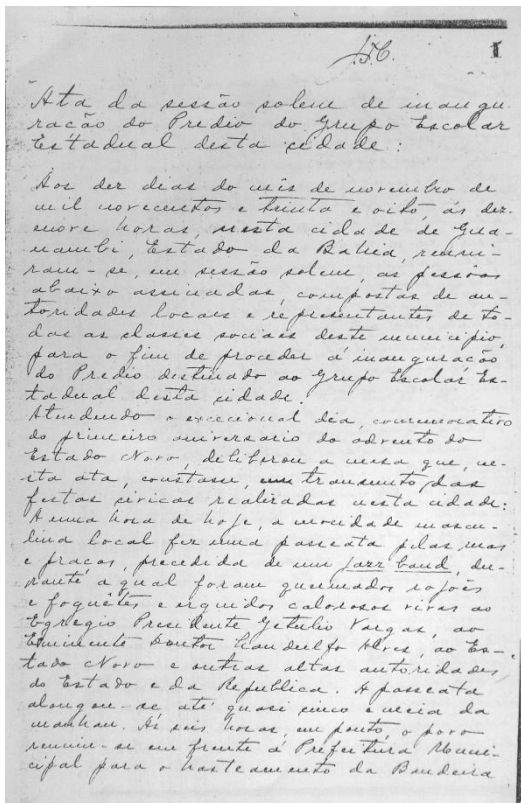 1
Ata da sessão solene de inaugu-
ração do Predio do Grupo Escolar
Estadual desta cidade:
Aos dez dias do mês de novembro de
mil novecentos e trinta e oito, ás dez-
enove horas, nesta cidade de Gua-
nambi, Estado da Bahia, reuni-
ram-se, em sessão solene, as pessôas
abaixo assinadas, compostas de au-
toridades locaes e representantes de to-
das as classes sociais deste municipio,
para o fim de proceder á inauguração
do Predio destinado ao Grupo Escolar Es-
tadual desta cidade.
Atendendo o excecional dia, comemorativo
do primeiro aniversario do advento do
Estado Novo, deliberou a mesa que, ne-
sta ata, constasse, transunto das
festas civicas realizadas nesta cidade:
A uma hora de hoje, a mocidade mascu-
lina local fez uma passeata pelas ruas
e praças, precedida de um jazz band, du-
rante a qual foram queimados rojões
e foguêtes e erguidos calorosos vivas ao
Egregio Presidente Getulio Vargas, ao
Eminente Doutor Landulfo Alves, ao Es-
tado Novo e outras altas autoridades
do Estado e da Republica. A passeata
alongou-se até quasi cinco e meia da
manhan. Ás seis horas, em ponto, o povo
reuniu-se em frente á Prefeitura Muni-
cipal para o hasteamento da Bandeira